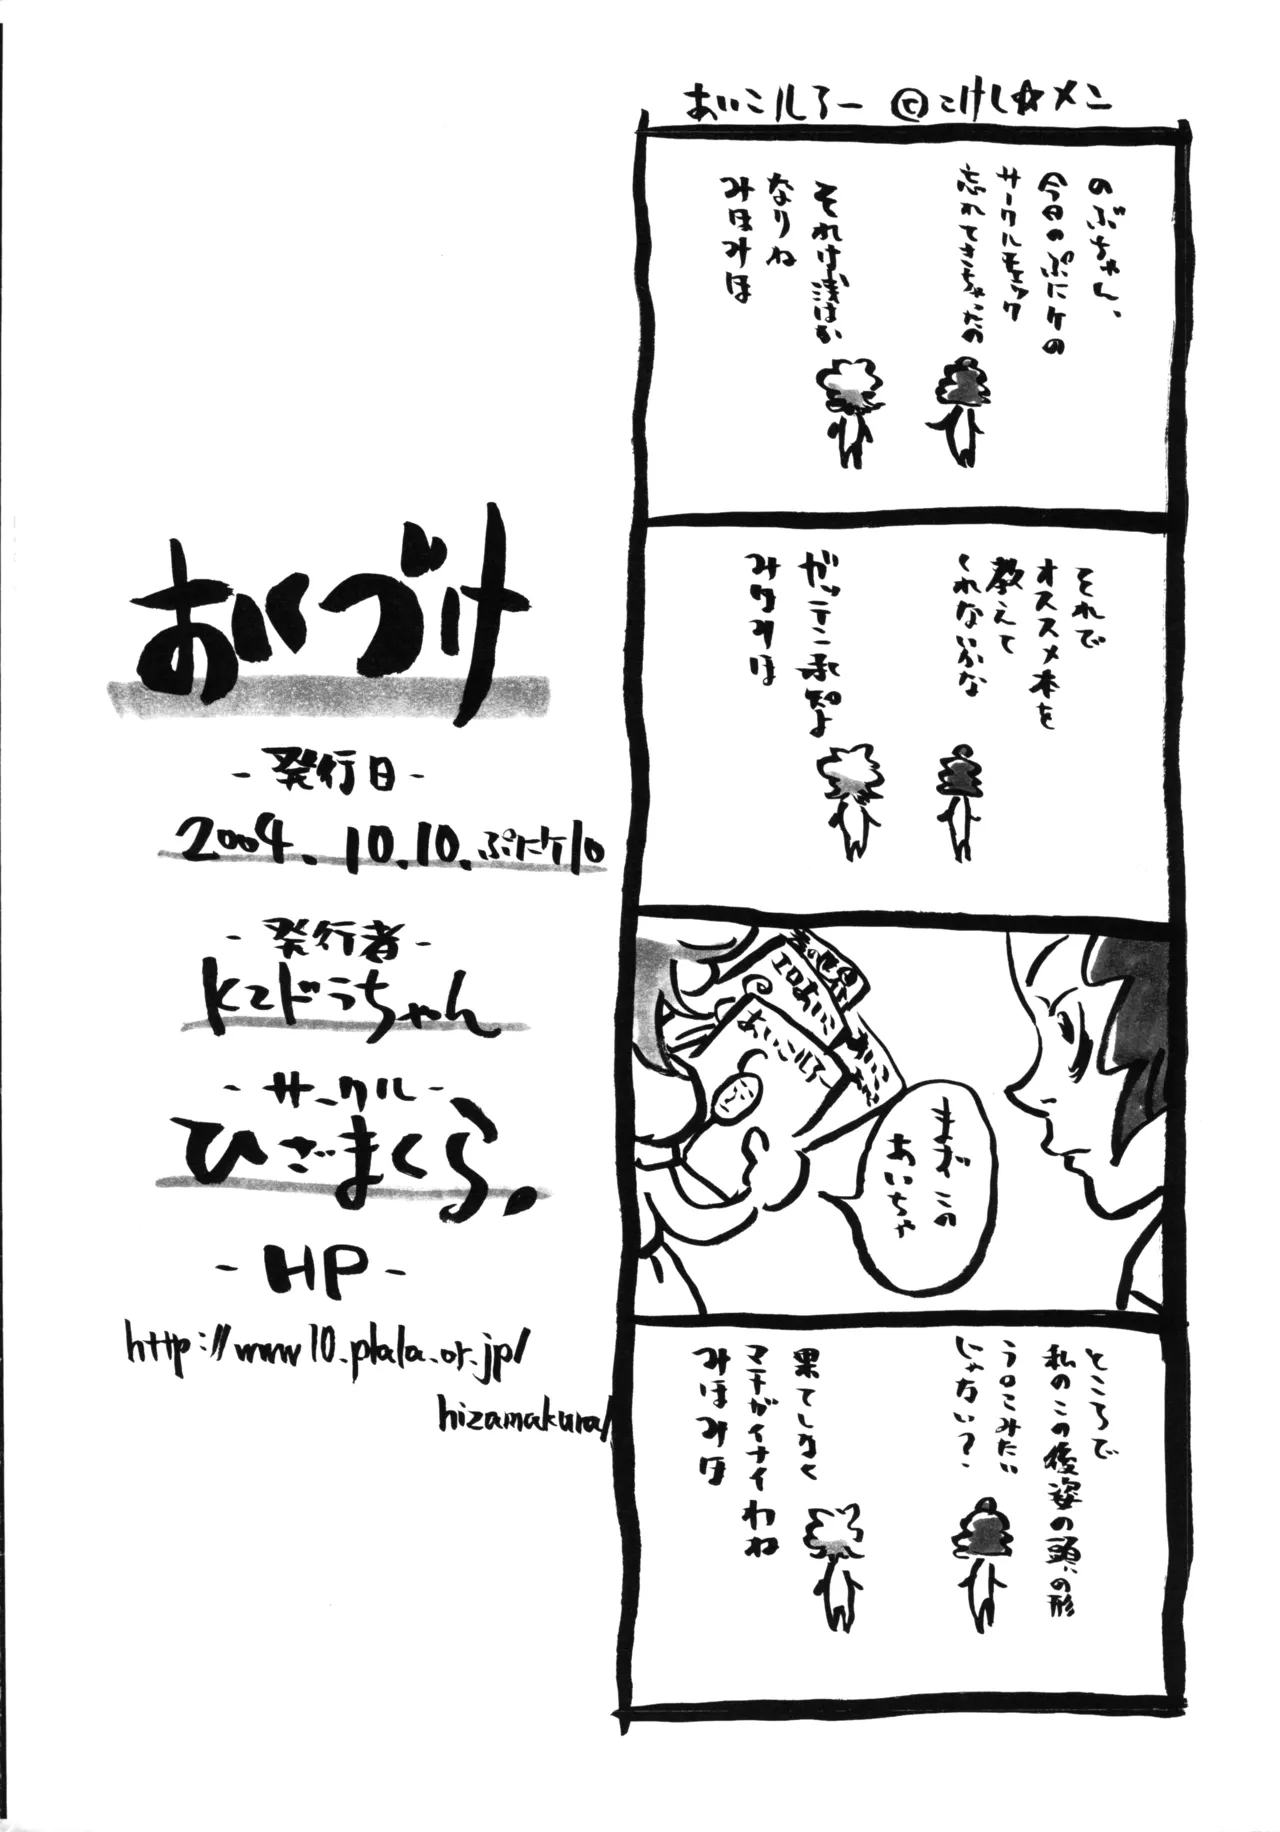 あいこルろー ©こけし☆メン
のぶちゃん、
今日のぷにケの
サークルチェック
忘れてきちゃったの
それは浅はか
なりね
みほみほ
それで
オススメ本を
教えて
くれないかな
ガッテン承知よ
みほみほ
エロあいこ
あいこルろー
まずこの
あいちゃ
ところで
私のこの後姿の頭の形
うんこみたい
じゃない？
果てしなく
マチガイナイわね
みほみほ
あいづけ
-発行日-
2004.10.10.ぷにケ10
-発行者-
K2ドラちゃん
-サークル-
ひざまくら。
-HP-
http://www10.plala.or.jp/
hizamakura/